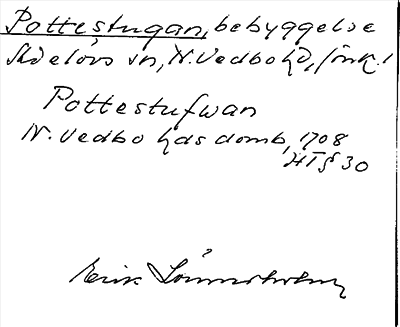 Pottestugan, bebyggelse
Skärlövs sn, N. Vedbo hd, Jönk. l
Pottestufwan
N. Vedbo häs domb, 1708
HT § 30
Erik Lönnerholm